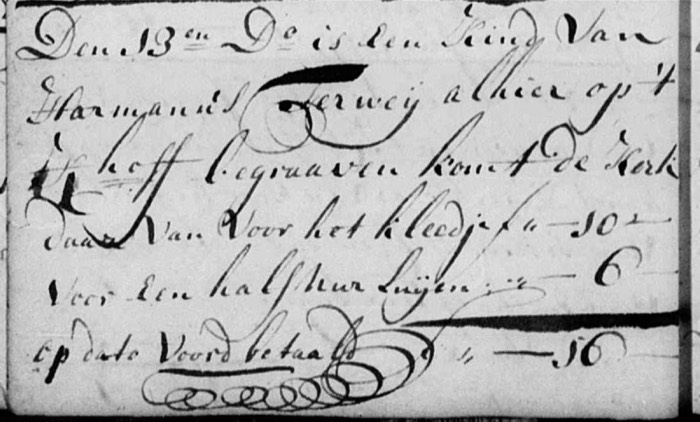 Den 13en Do is Een Kind Van
Harmanus Terweij alhier op 't
K hoff begraaven komt de Kerk
daar Van Voor het kleedje f " — 10 -
Voor Een half uur Luijen " — 6
op dato Voord betaald " — 16